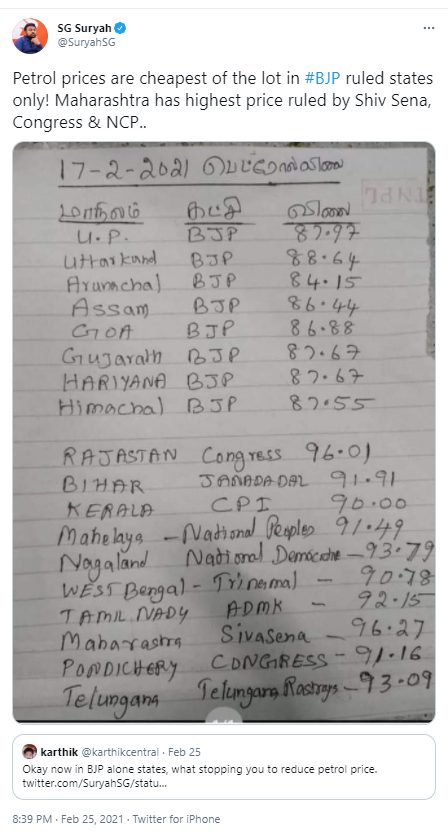 SG Suryah
@SuryahSG
Petrol prices are cheapest of the lot in #BJP ruled states
only! Maharashtra has highest price ruled by Shiv Sena,
Congress & NCP..
17-2-2021 பெட்ரோல்விலை
மாநிலம் கட்சி விலை
U.P. BJP 87.97
Uttarkand BJP 88.64
Arunachal BJP 84.15
Assam BJP 86.44
GOA BJP 86.88
Gujarath BJP 87.67
HARIYANA BJP 87.67
Himachal BJP 87.55
RAJASTAN Congress 96.01
BIHAR JANADADAL 91.91
KERALA CPI 90.00
Mahelaya - National Peoples 91.49
Nagaland National Democratie - 93.79
WEST Bengal - Trinamal - 90.78
TAMIL NADY ADMK - 92.15
Maharastra SivaSena - 96.27
PONDICHERY CONGRESS - 91.16
Telungana Telungana Rastrays - 93.09
1/1
karthik @karthikcentral · Feb 25
Okay now in BJP alone states, what stopping you to reduce petrol price.
twitter.com/SuryahSG/statu...
8:39 PM · Feb 25, 2021 · Twitter for iPhone